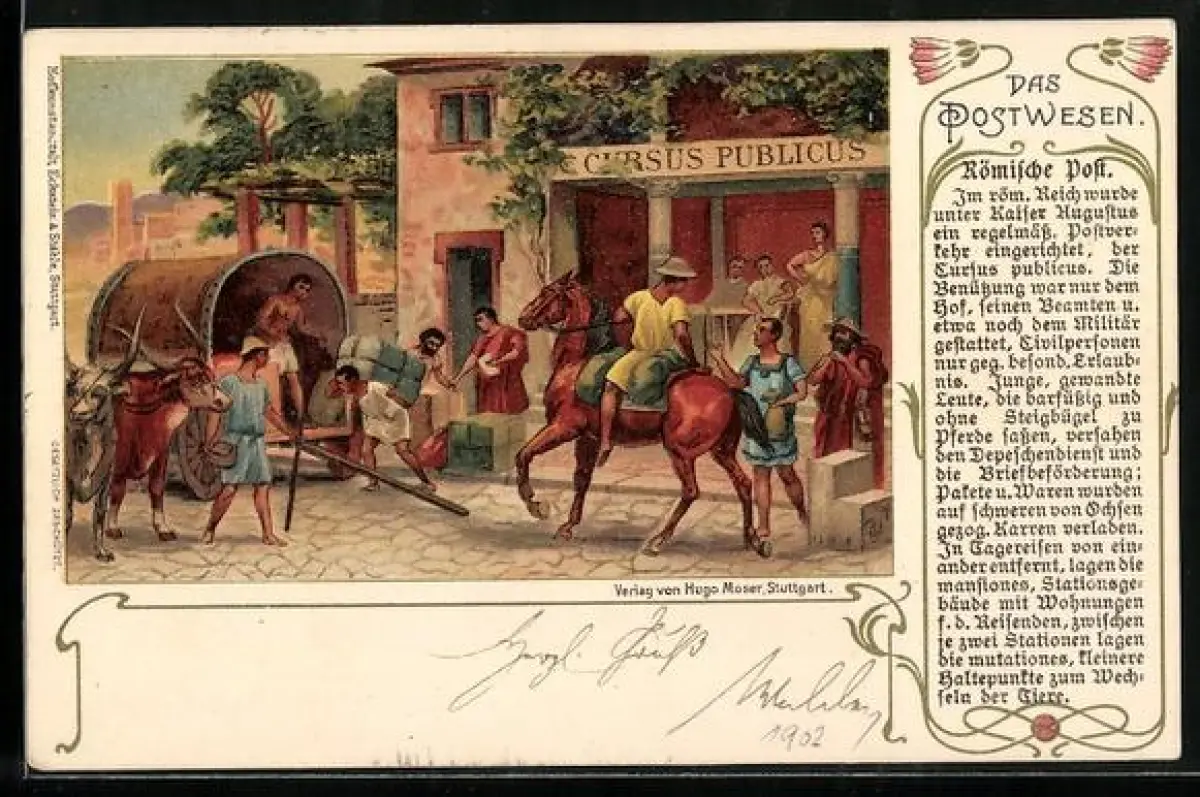 CURSUS PUBLICUS
Verlag von Hugo Moser, Stuttgart.
DAS
POSTWESEN.
Römische Post.
Im röm. Reich wurde
unter Kaiser Augustus
ein regelmäß. Postver-
kehr eingerichtet, der
Cursus publicus. Die
Benützung war nur dem
Hof, seinen Beamten u.
etwa noch dem Militär
gestattet, Civilpersonen
nur geg. besond. Erlaub-
nis. Junge, gewandte
Leute, die barfüßig und
ohne Steigbügel zu
Pferde saßen, versahen
den Depeschendienst und
die Briefbeförderung;
Pakete u. Waren wurden
auf schweren von Ochsen
gezog. Karren verladen.
In Tagereisen von ein-
ander entfernt, lagen die
mansiones, Stationsge-
bäude mit Wohnungen
f. d. Reisenden, zwischen
je zwei Stationen lagen
die mutationes, kleinere
Haltepunkte zum Wech-
seln der Tiere.
Herzl. Gruß
1902